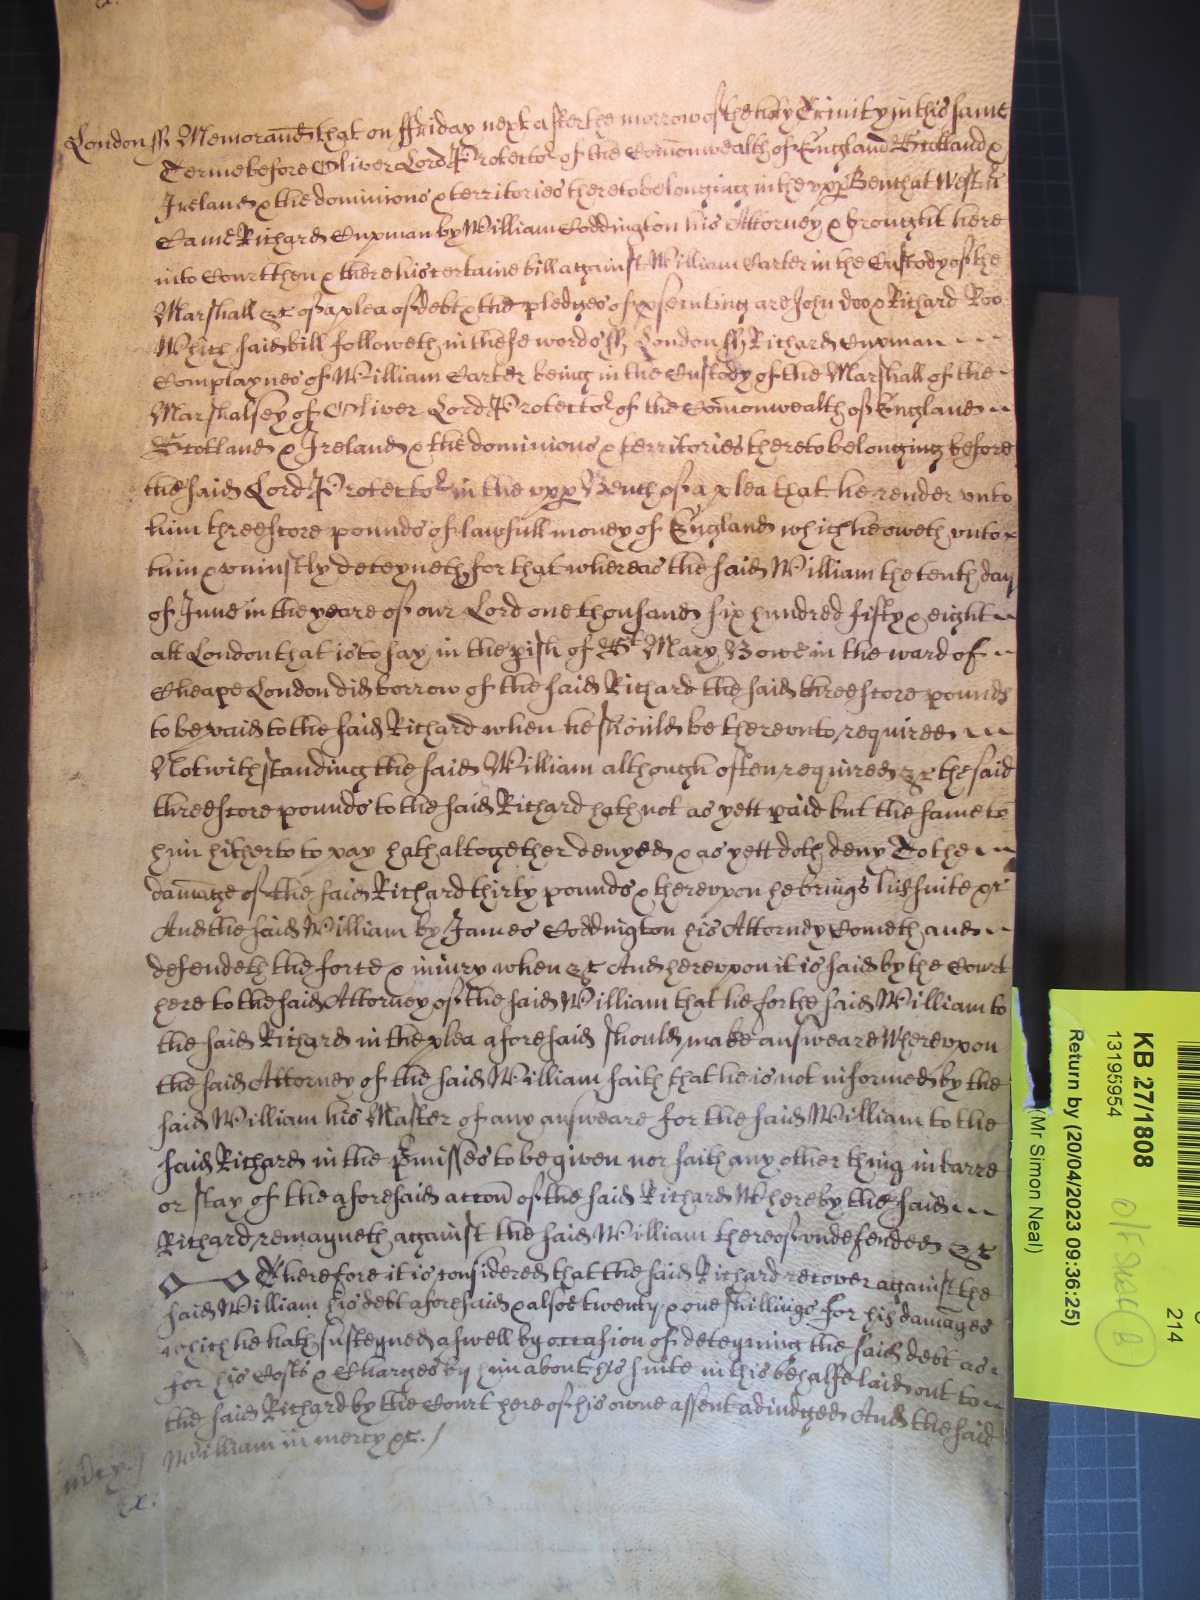 London ss Memorand that on ffriday next after the morrow of the holy Trinity in this same
Terme before Oliver Lord Protector of the Comonwealth of England Scotland &
Ireland & the dominions & territories thereto belonging in the upp Bench at Westm
Came Richard Cuxman by William Coddington his Attorney & brought here
into Court then & there his certaine bill against William Carter in the Custody of the
Marshall &c of a plea of debt & the pledges of psecuting are John doo & Richard Roo
Which said bill followeth in these words ss London ss Richard Cuxman
Complaynes of William Carter being in the Custody of the Marshall of the
Marshalsey of Oliver Lord Protector of the Comonwealth of England
Scotland & Ireland & the dominions & territories thereto belonging before
the said Lord Protector in the upp Bench of a plea that he render unto
him threescore pounds of lawfull money of England which he oweth unto
him & uniustly deteyneth for that whereas the said William the tenth day
of June in the yeare of our Lord one thousand six hundred fifty & eight
att London that is to say in the pish of St Mary Bowe in the ward of
Cheape London did borrow of the said Richard the said threescore pounds
to be paid to the said Richard when he should be thereunto required
Notwithstanding the said William although often required &c the said
threescore pounds to the said Richard hath not as yett paid but the same to
him hitherto to pay hath altogether denyed & as yett doth deny To the
damage of the said Richard thirty pounds & thereupon he brings his suite &c
And the said William by James Coddington his Attorney Cometh and
defendeth the force & iniury when &c And hereupon it is said by the Court
here to the said Attorney of the said William that he for the said William to
the said Richard in the plea aforesaid should make answeare Whereupon
the said Attorney of the said William saith that he is not informed by the
said William his Master of any answeare for the said William to the
said Richard in the pmisses to be given nor saith any other thing in barre
or stay of the aforesaid accon of the said Richard Whereby the said
Richard remayneth against the said William thereof undefended &c
Therefore it is considered that the said Richard recover against the
said William his debt aforesaid & alsoe twenty & one shillings for his damages
which he hath susteyned aswell by occasion of deteyning the said debt as
for his Costs & Charges by him about his suite in this behalfe laid out to
the said Richard by the Court here of his owne assent adiudged And the said
William in mercy &c.
mcy.
KB 27/1808
13195954
Return by (20/04/2023 09:36:25)
(Mr Simon Neal)
214